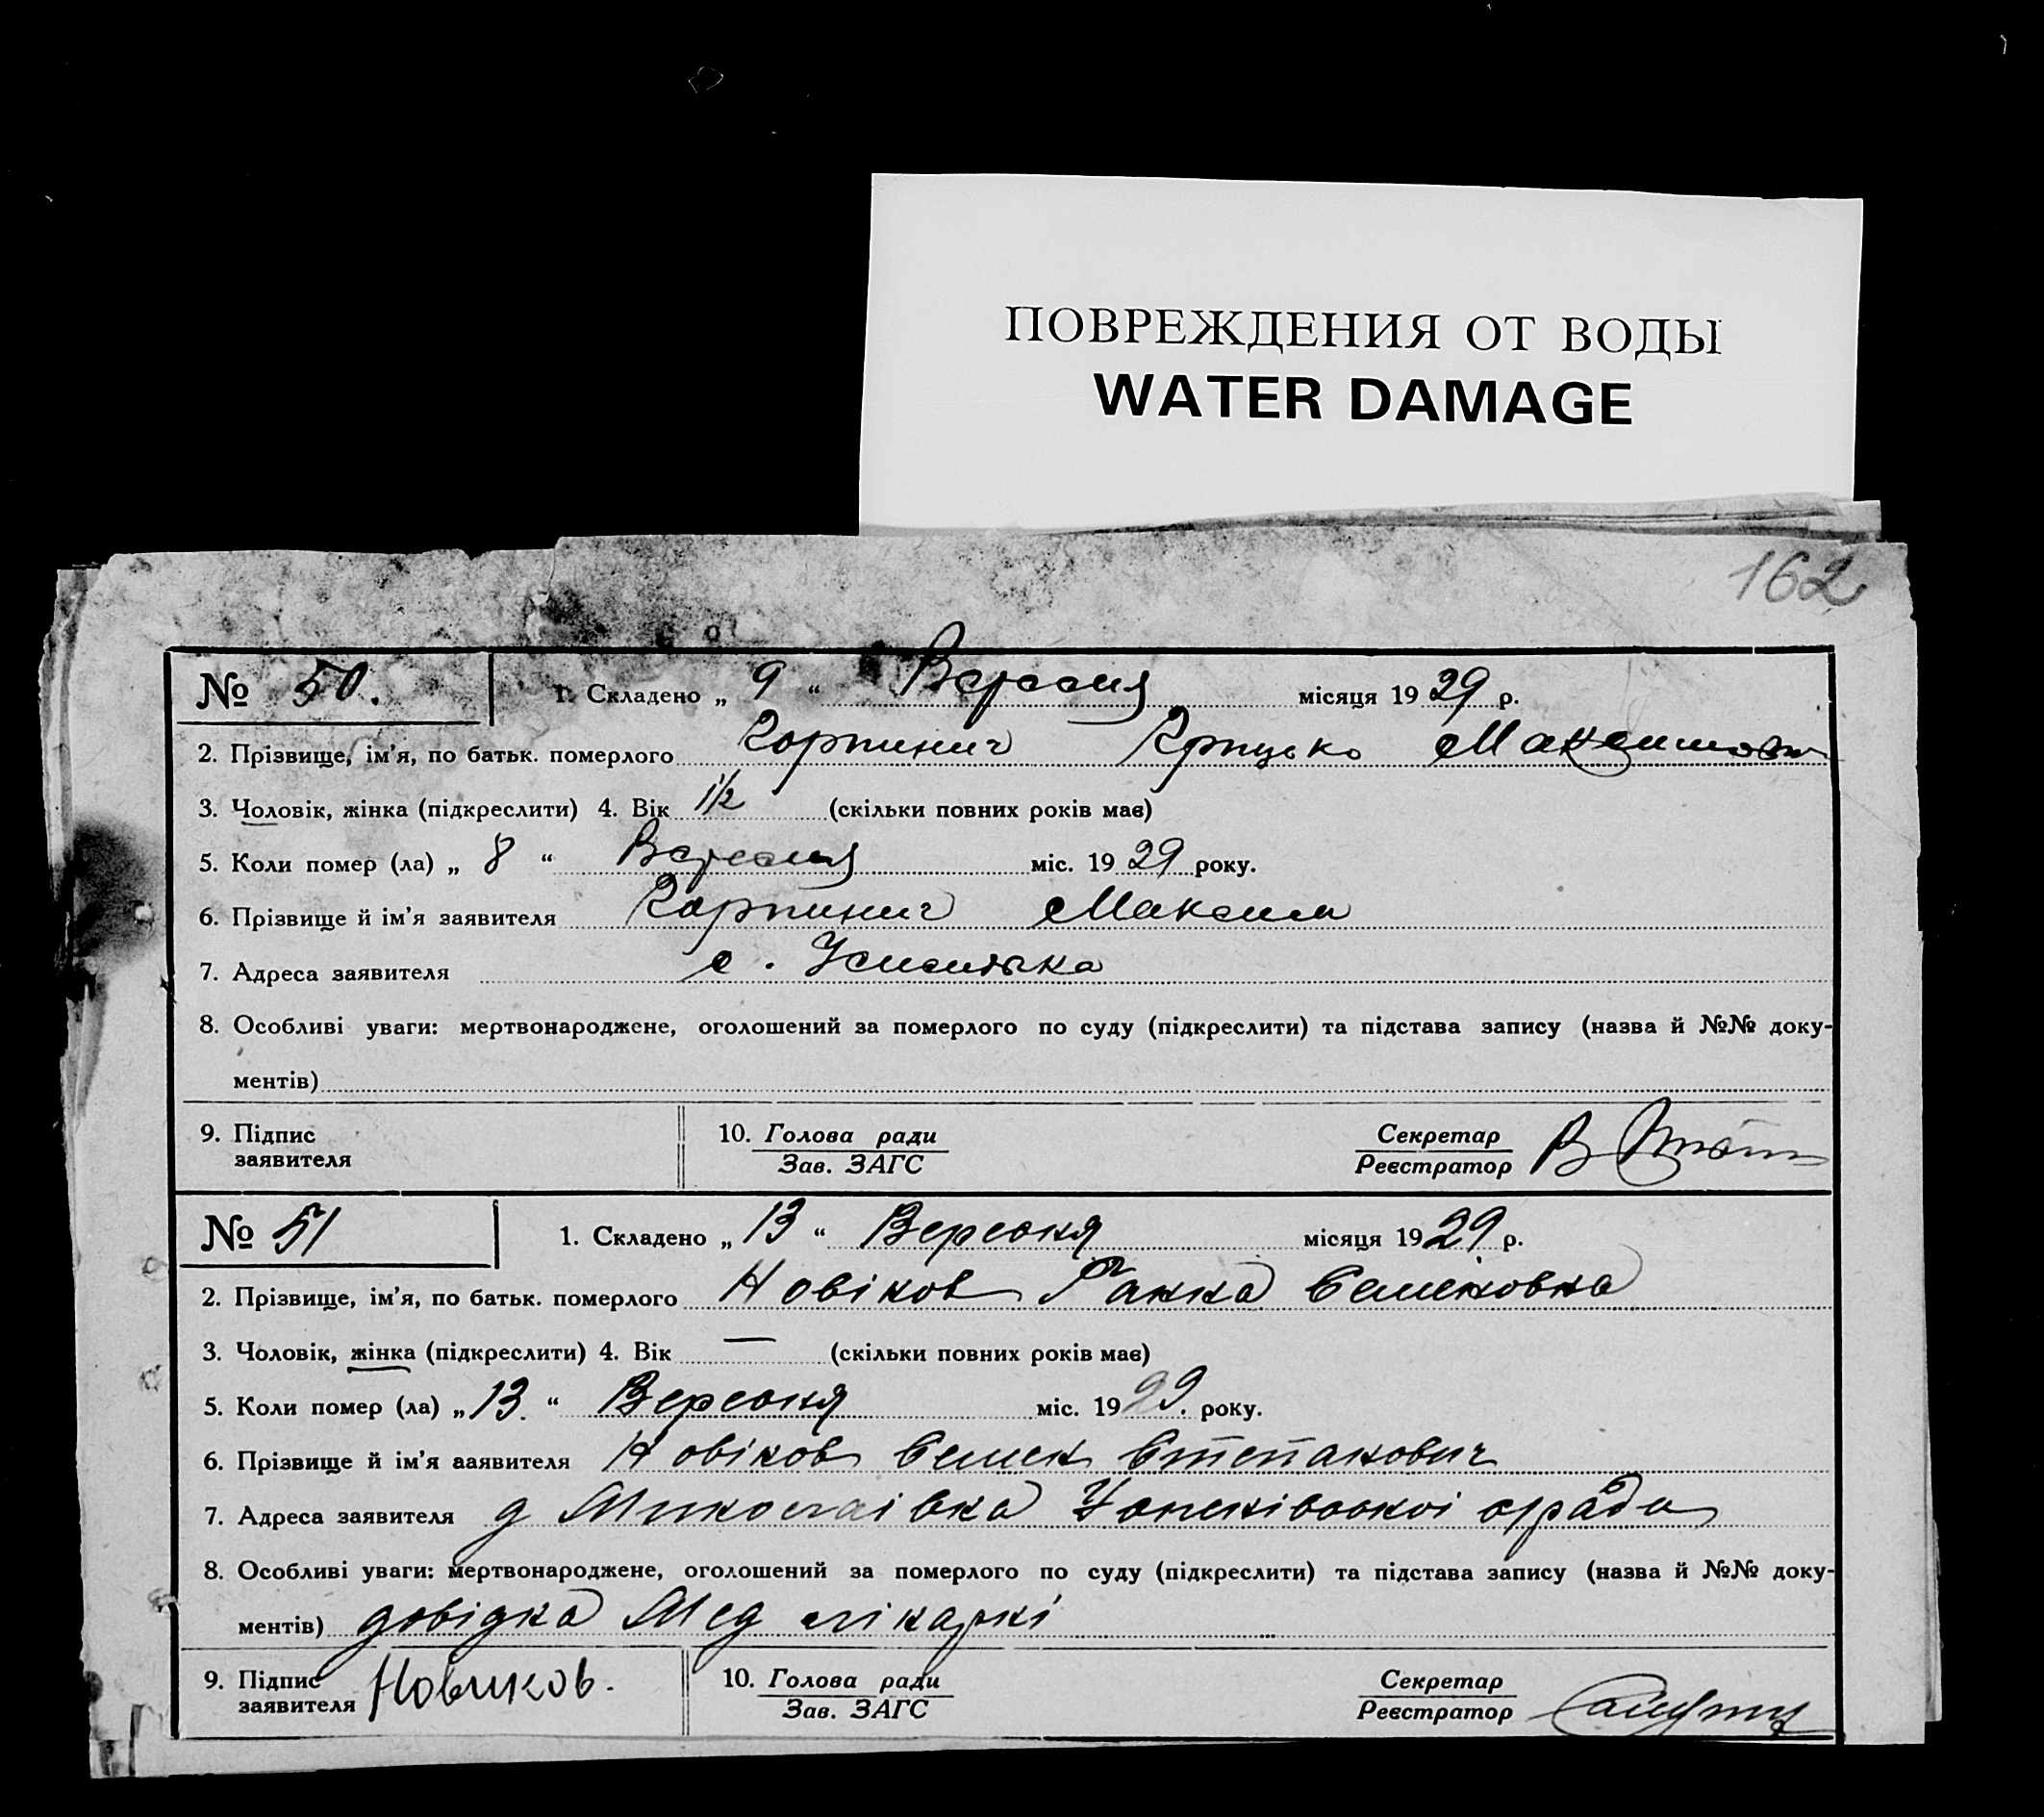 ПОВРЕЖДЕНИЯ ОТ ВОДЫ
WATER DAMAGE
162
№ 50. 1. Складено „ 9 “ Вересня місяця 19 29 р.
2. Прізвище, ім'я, по батьк. померлого Карпинич Грицько Максимови
3. Чоловік, жінка (підкреслити) 4. Вік 1½ (скільки повних років має)
5. Коли помер (ла) „ 8 “ Вересня міс. 19 29 року.
6. Прізвище й ім'я заявителя Карпинич Максим
7. Адреса заявителя с.
8. Особливі уваги: мертвонароджене, оголошений за померлого по суду (підкреслити) та підстава запису (назва й №№ доку-
ментів)
9. Підпис заявителя 10. Голова ради Зав. ЗАГС Секретар Реєстратор
№ 51 1. Складено „ 13 “ Вересня місяця 19 29 р.
2. Прізвище, ім'я, по батьк. померлого Новіков Ганна Семеновна
3. Чоловік, жінка (підкреслити) 4. Вік — (скільки повних років має)
5. Коли помер (ла) „ 13. “ Вересня міс. 19 29. року.
6. Прізвище й ім'я заявителя Новіков Семен Степанович
7. Адреса заявителя д Миколаівка с/ради
8. Особливі уваги: мертвонароджене, оголошений за померлого по суду (підкреслити) та підстава запису (назва й №№ доку-
ментів) довідка Мед лікаркі
9. Підпис заявителя Новиков. 10. Голова ради Зав. ЗАГС Секретар Реєстратор